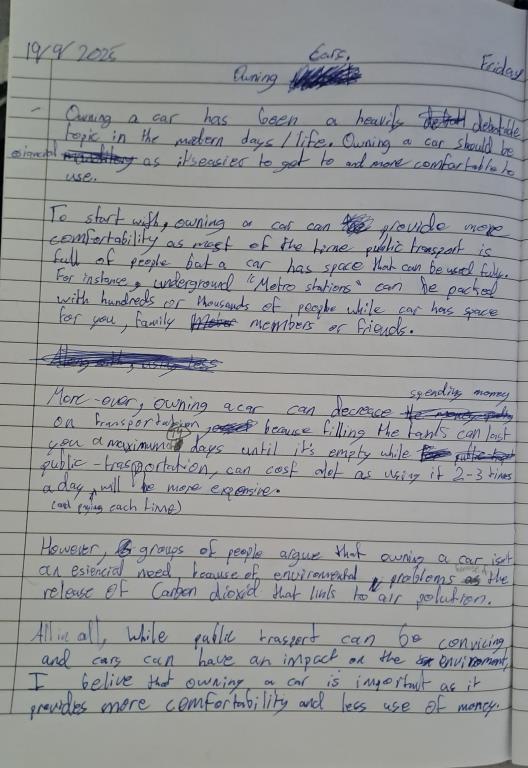 19/9/2025 Cars. Friday
Owning
- Owning a car has been a heavily debatable
topic in the modern days/life. Owning a car should be
esiancial as itseasier to get to and more comfortable to
use.
To start with, owning a car can provide more
comfortability as most of the time public transport is
full of people but a car has space that can be used fully.
For instance, underground "Metro stations" can be packed
with hundreds or thousands of people while car has space
for you, family members or friends.
More-over, owning a car can decrease spending money
on transportation, because filling the tanks can last
you a maximum days until it's empty while
public-trasportation, can cost alot as using it 2-3 times
a day, will be more expensive.
(and paying each time)
However, groups of people argue that owning a car isnt
an esiencial need, because of envirenmental problems the
release of Carbon dioxid that links to air polution.
All in all, while public trasport can be convicing
and cars can have an impact on the envirenment,
I belive that owning a car is important as it
provides more comfortability and less use of money.